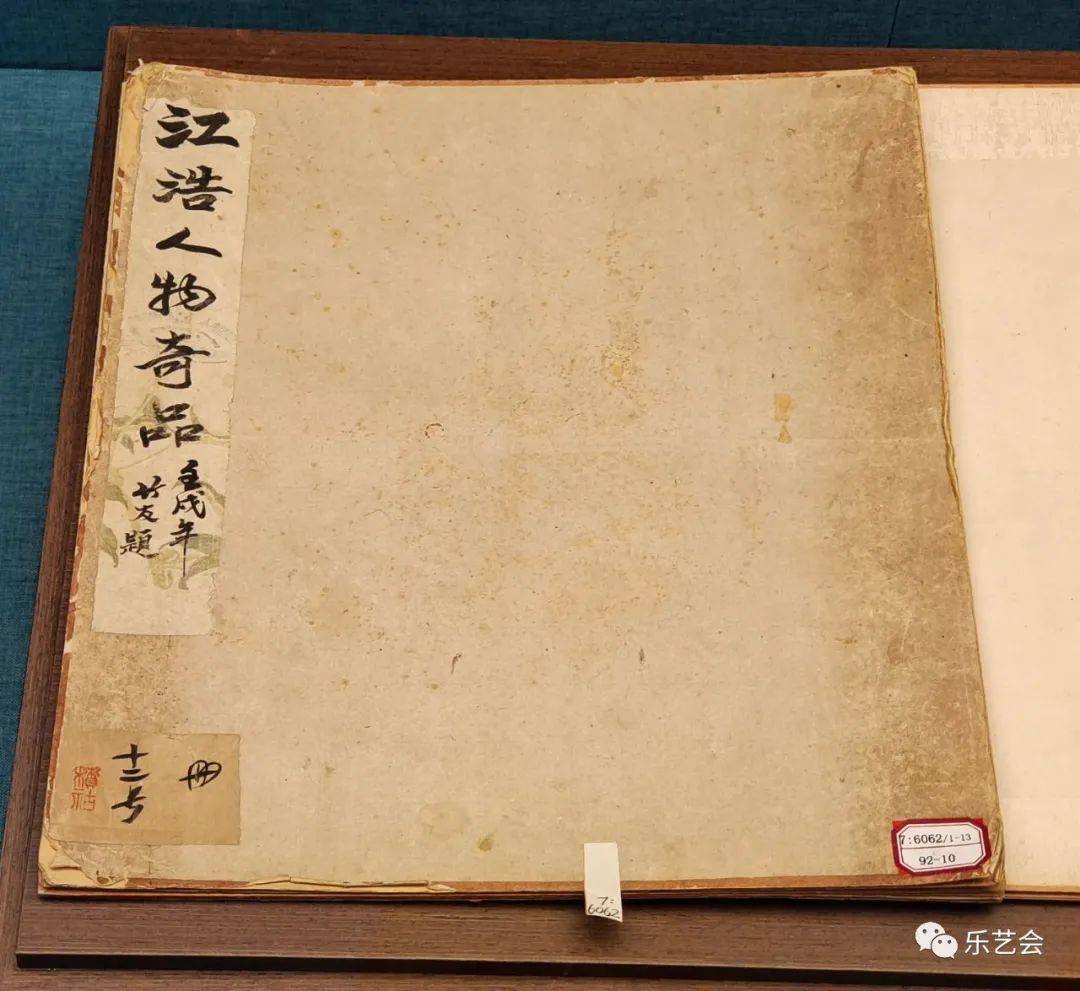 江浩人物奇品
壬戌年
竹友題
冊
十二号
7:6062/1-13
92-10
7:
6062
乐艺会